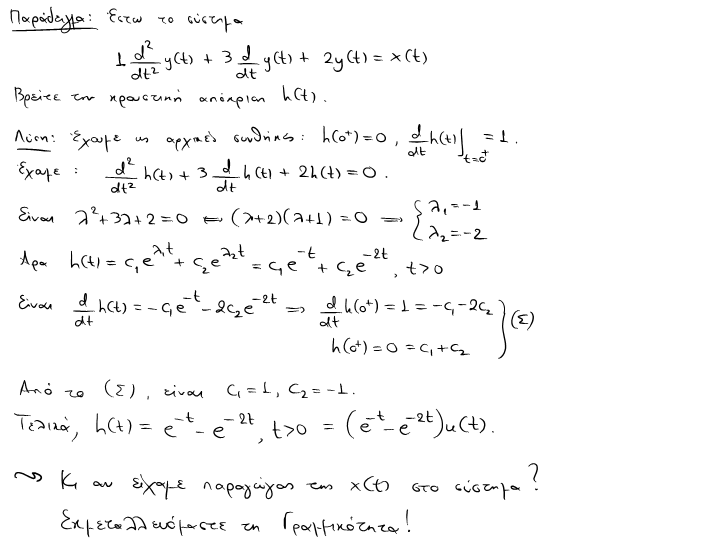 Παράδειγμα: Έστω το σύστημα
1 d²/dt² y(t) + 3 d/dt y(t) + 2y(t) = x(t)
Βρείτε την κρουστική απόκριση h(t).
Λύση: Έχουμε ως αρχικές συνθήκες: h(0⁺) = 0, d/dt h(t)]_{t=0⁺} = 1.
Έχουμε: d²/dt² h(t) + 3 d/dt h(t) + 2h(t) = 0.
Είναι λ² + 3λ + 2 = 0 ⇔ (λ+2)(λ+1) = 0 ⇒ { λ₁ = -1
λ₂ = -2
Άρα h(t) = c₁e^{λ₁t} + c₂e^{λ₂t} = c₁e^{-t} + c₂e^{-2t}, t>0
Είναι d/dt h(t) = -c₁e^{-t} - 2c₂e^{-2t} ⇒ d/dt h(0⁺) = 1 = -c₁ - 2c₂ } (Σ)
h(0⁺) = 0 = c₁ + c₂
Από το (Σ), είναι c₁ = 1, c₂ = -1.
Τελικά, h(t) = e^{-t} - e^{-2t}, t>0 = (e^{-t} - e^{-2t})u(t).
⇝ Κι αν είχαμε παραγώγους της x(t) στο σύστημα?
Εκμεταλλευόμαστε τη Γραμμικότητα!